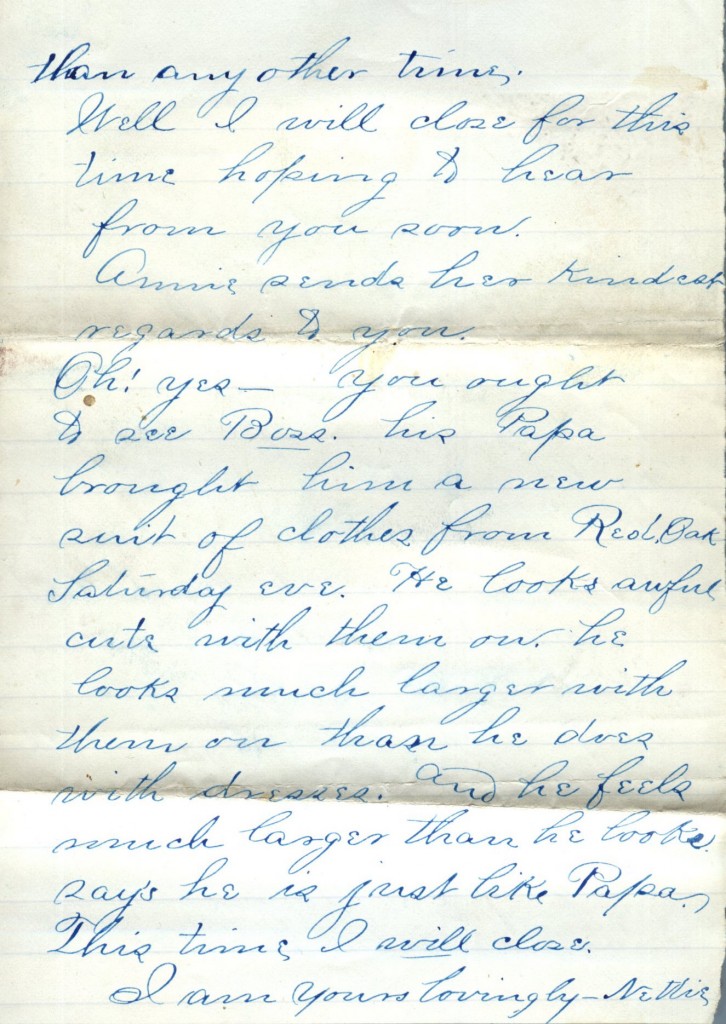 than any other time.
Well I will close for this
time hoping to hear
from you soon.
Annie sends her kindest
regards to you.
Oh! yes — you ought
to see Boss. his Papa
brought him a new
suit of clothes from Red Oak
Saturday eve. He looks awful
cute with them on. he
looks much larger with
them on than he does
with dresses. and he feels
much larger than he looks.
say's he is just like Papa.
This time I will close.
I am yours lovingly — Nettie